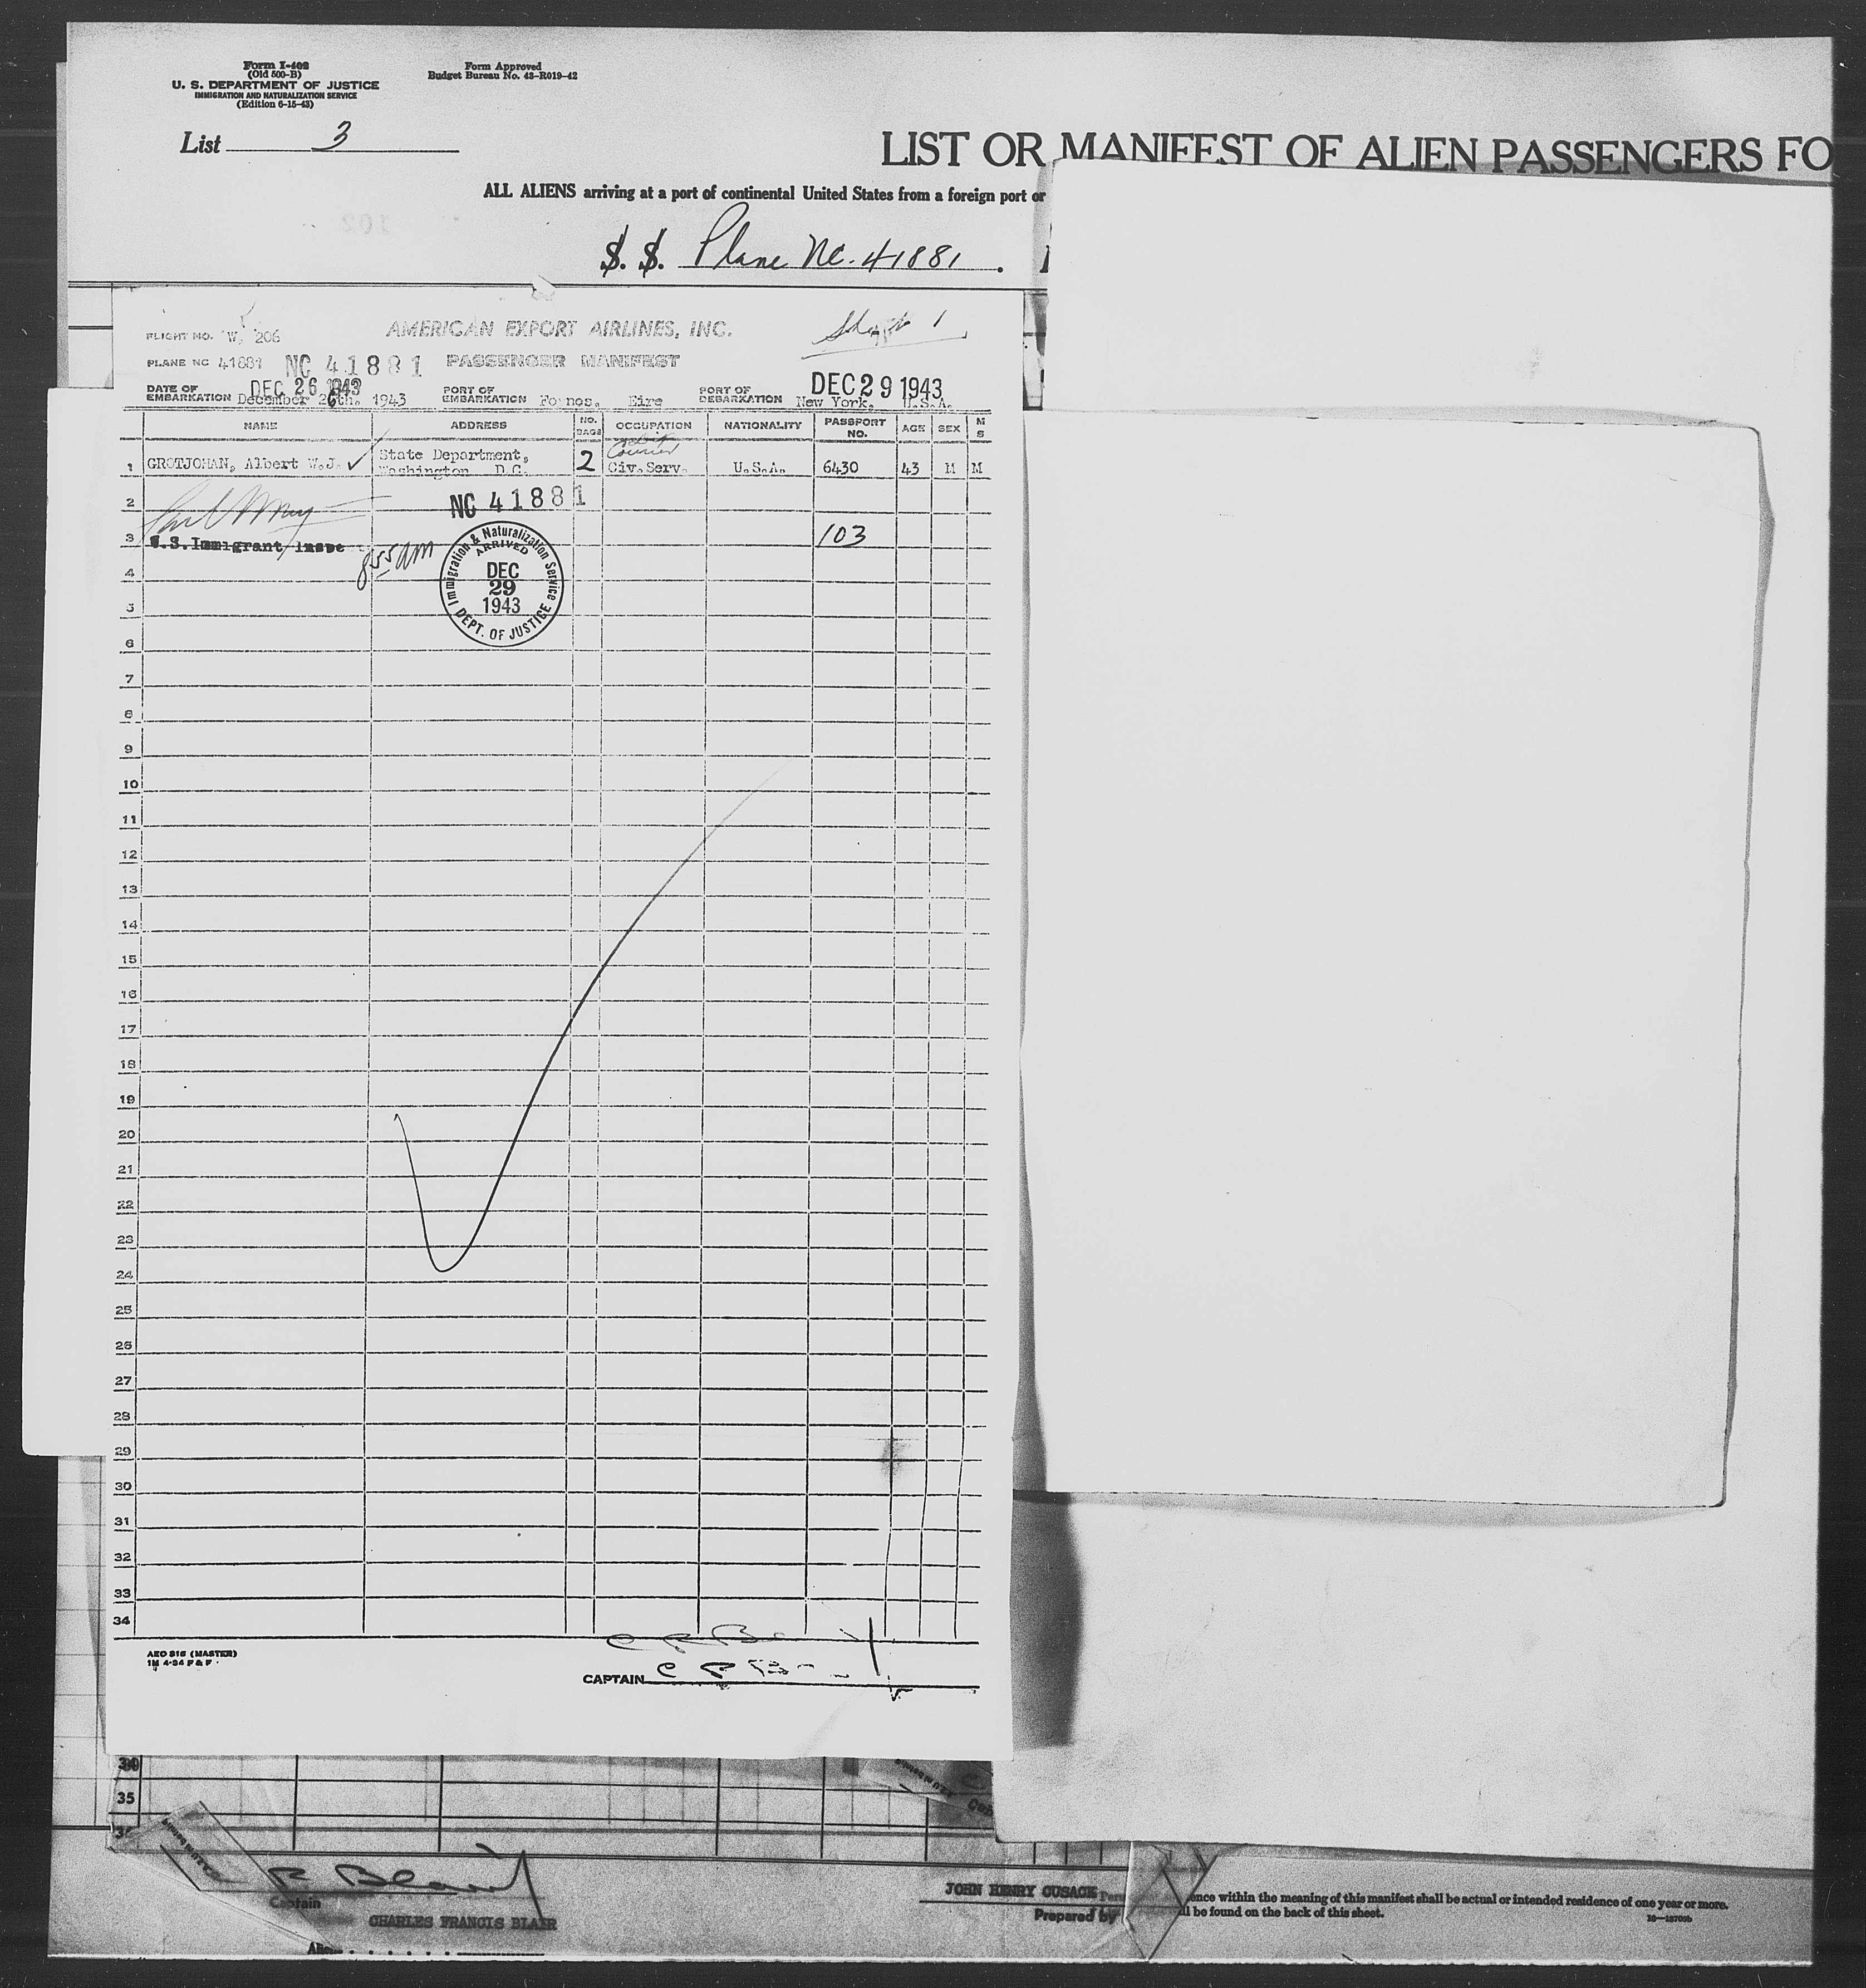 Form I-402
(Old 500-B)
U. S. DEPARTMENT OF JUSTICE
IMMIGRATION AND NATURALIZATION SERVICE
(Edition 6-15-43)
Form Approved
Budget Bureau No. 43-R019-42
List 3
LIST OR MANIFEST OF ALIEN PASSENGERS FO
ALL ALIENS arriving at a port of continental United States from a foreign port or
S. S. Plane NC. 41881.
FLIGHT NO. W. 206 AMERICAN EXPORT AIRLINES, INC. 1
PLANE NC 41881 NC 41881 PASSENGER MANIFEST
DEC 26 1943 DEC 29 1943
DATE OF EMBARKATION December 26th. 1943 PORT OF EMBARKATION Foynes, Eire PORT OF DEBARKATION New York, U.S.A.
NAME ADDRESS NO. BAGS OCCUPATION NATIONALITY PASSPORT NO. AGE SEX M S
1 GROTJOHAN, Albert W.J. State Department, Washington D.C. 2 Courier Civ. Serv. U.S.A. 6430 43 M M
2 NC 41881
3 U.S. Immigrant Inspe 103
855 AM
Immigration & Naturalization Service
ARRIVED
DEC
29
1943
DEPT. OF JUSTICE
4
5
6
7
8
9
10
11
12
13
14
15
16
17
18
19
20
21
22
23
24
25
26
27
28
29
30
31
32
33
34
AEO 816 (MASTER)
CAPTAIN
35
C F Blair
Captain
CHARLES FRANCIS BLAIR
JOHN HENRY CUSACK
Prepared by
ence within the meaning of this manifest shall be actual or intended residence of one year or more.
ll be found on the back of this sheet.